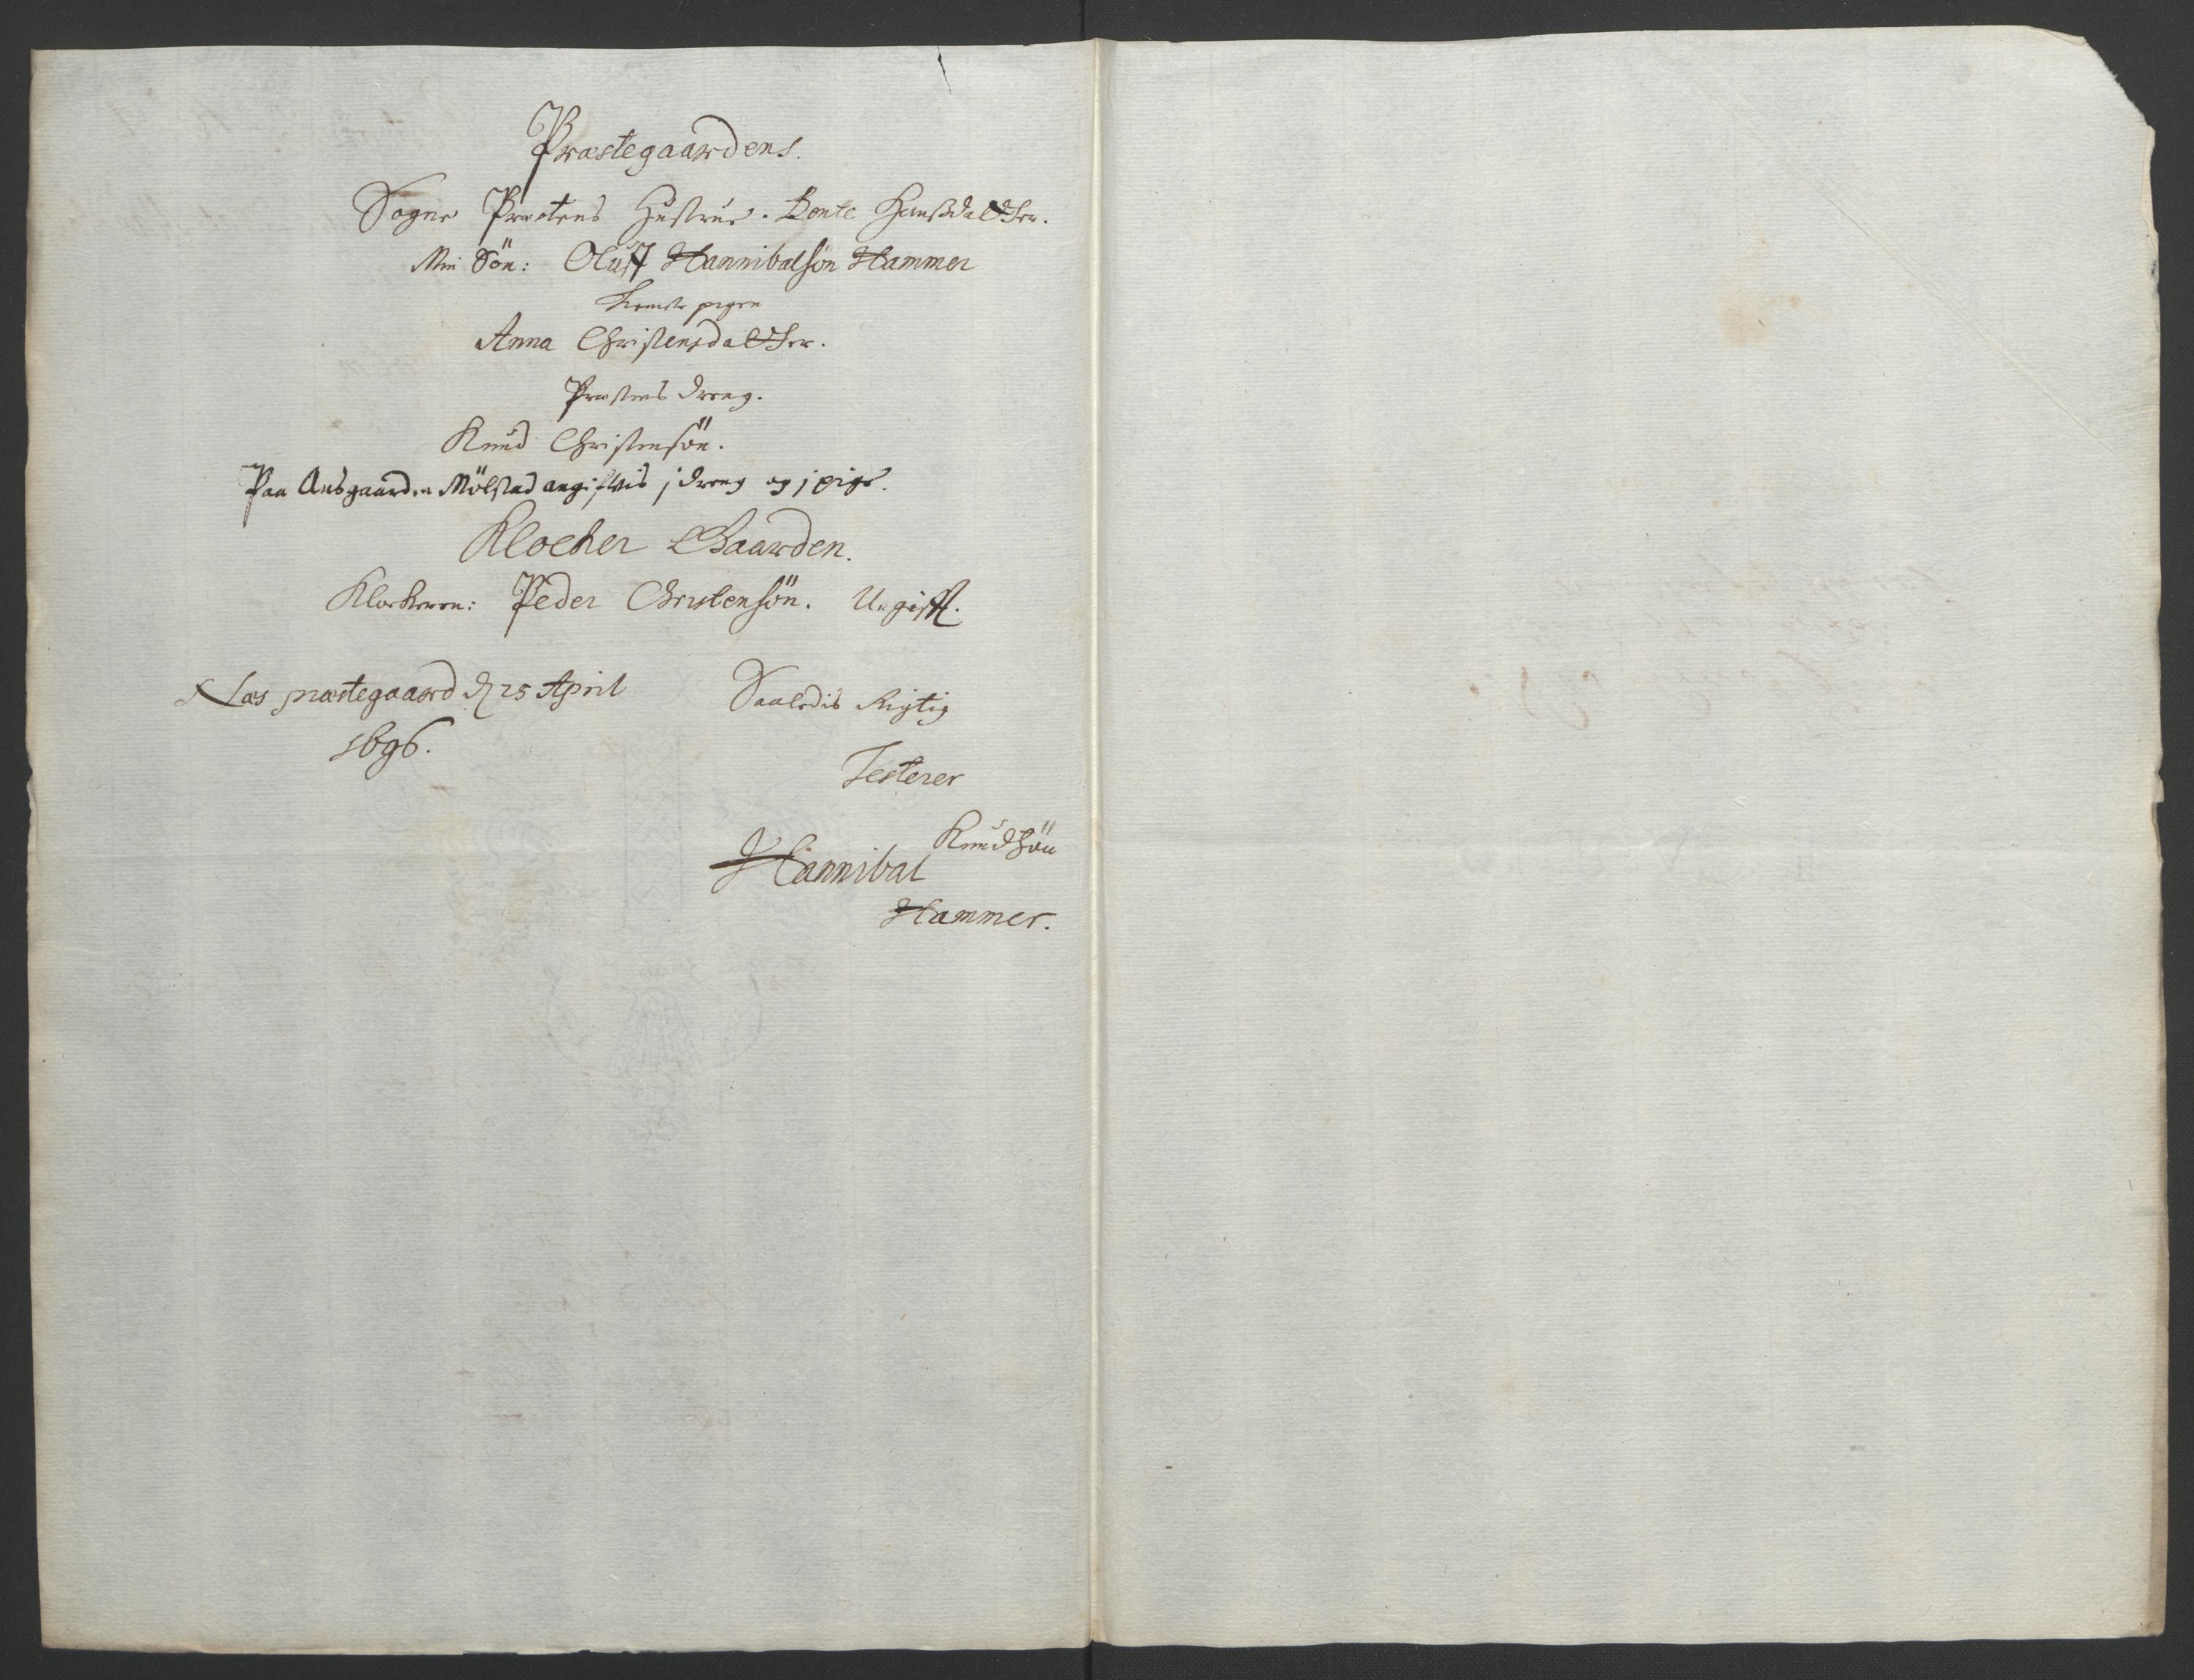 Præstegaardens.
Sogne Præstens Hustrue. Bente Hanßdaetter.
Min Sön: Oluff Hannibalsøn Hammer
pigen
Anna Christensdaetter.
Præstens dreng.
Knud Christensön.
Paa Ansgaarden Mölstad angifvis j dreng og j pige.
Klocker Gaarden.
Klockeren: Peder Christensön. Ugifft.
Næs præstegaard d 25 April
1696.
Saaledis Rigtig
Testerer
Hannibal Knudsön
Hammer.